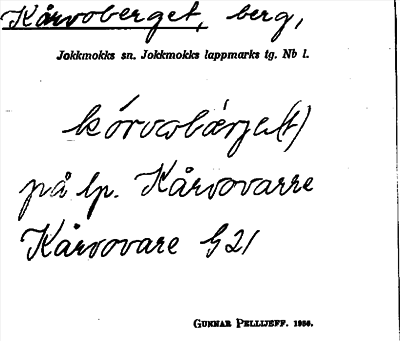 Kårvoberget, berg,
Jokkmokks sn. Jokkmokks lappmarks tg. Nb l.
kórvobærje(t)
på lp. Kårvovarre
Kårvovare G 21
GUNNAR PELLIJEFF. 1986.